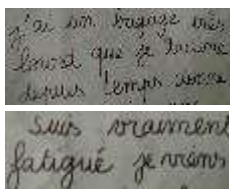 j'ai un bagage très
lourd que je traine
depuis temps
suis vraiment
fatigué je viens